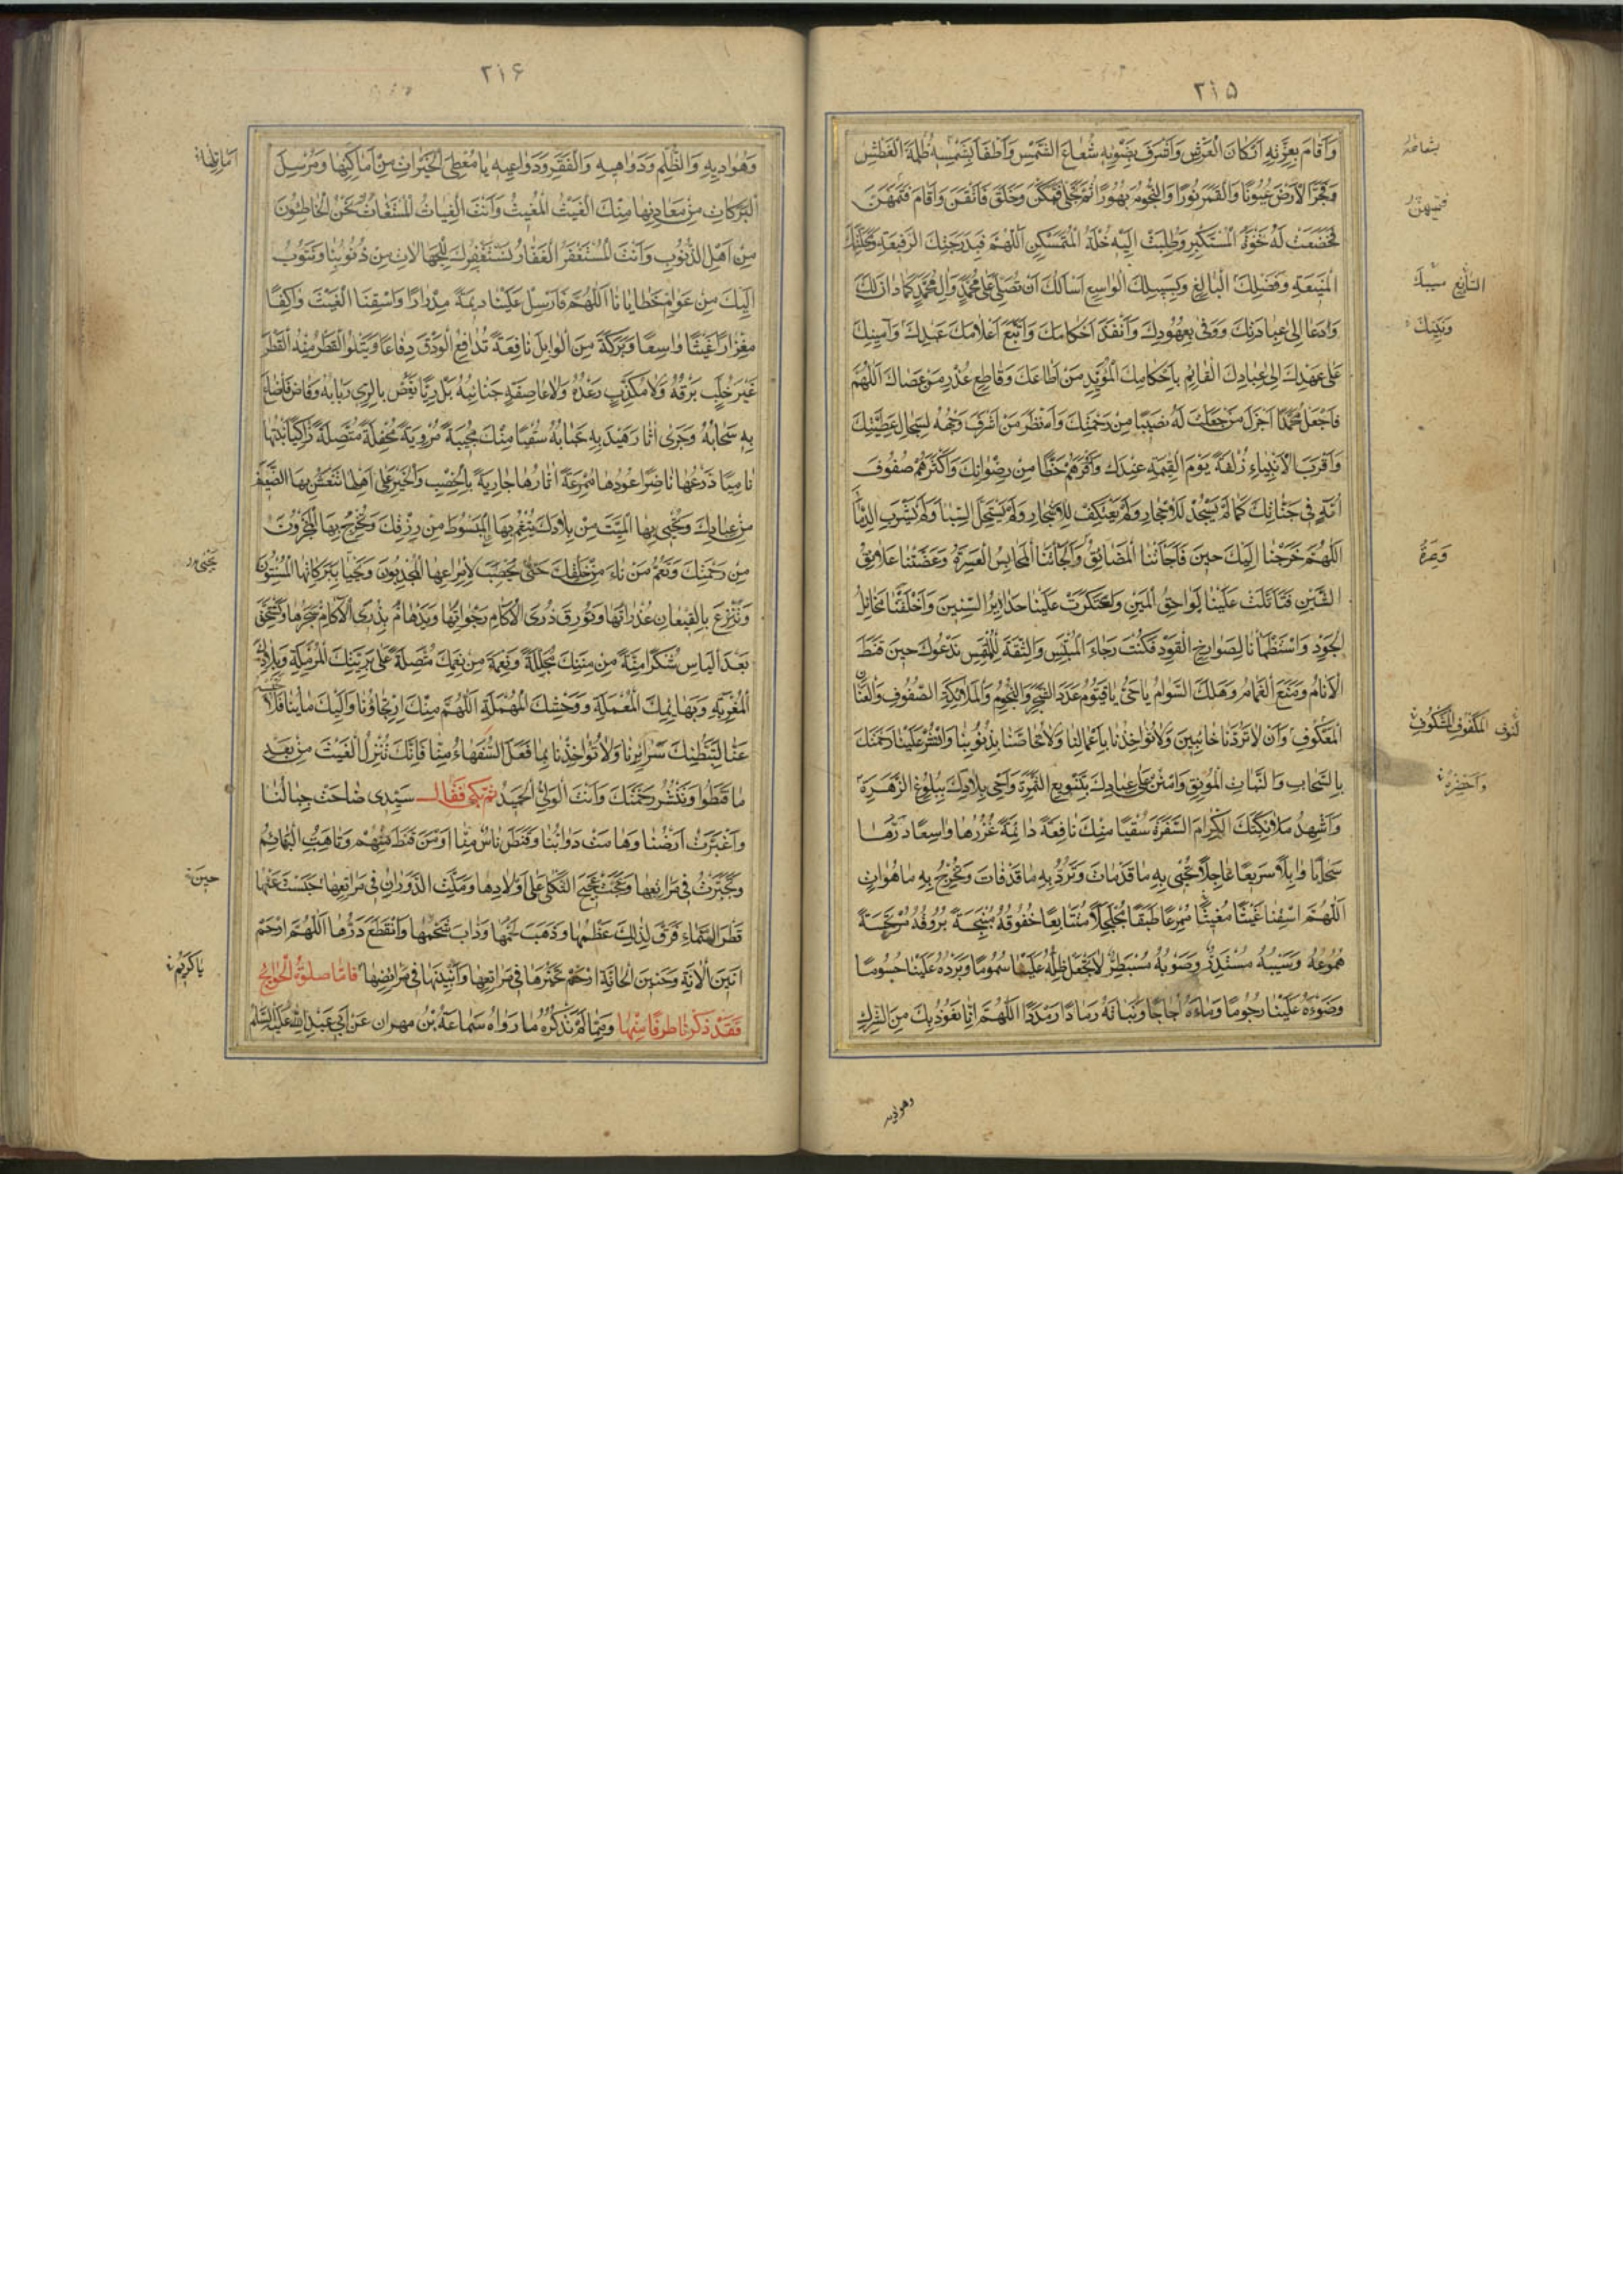 ٢١۵
وَاَقامَ بِعِزَّتِهِ اَرْكانَ الْعَرْشِ وَاَشْرَفَ بِضَوْئِهِ شُعاعَ الشَّمْسِ وَاَطْفَأَ بِشَمْسِهِ ظُلْمَةَ الْغَطْشِ
وَفَجَّرَ الْاَرْضَ عُيُونًا وَالْقَمَرَ نُورًا وَالنُّجُومَ بُهُورًا ثُمَّ تَجَلّى فَتَمَكَّنَ وَخَلَقَ فَاَتْقَنَ وَاَقامَ فَتَهَيْمَنَ
فَخَضَعَتْ لَهُ نَخْوَةُ الْمُسْتَكْبِرِ وَطُلِبَتْ اِلَيْهِ خُلَّةُ الْمُتَمَسْكِنِ اَللّهُمَّ فَبِدَرَجَتِكَ الرَّفيعَةِ وَمَحَلَّتِكَ
الْمَنيعَةِ وَفَضْلِكَ الْبالِغِ وَسَبيلِكَ الْواسِعِ اَسْاَلُكَ اَنْ تُصَلِّيَ عَلى مُحَمَّدٍ وَالِ مُحَمَّدٍ كَما دانَ لَكَ
وَدَعا اِلى عِبادَتِكَ وَوَفى بِعُهُودِكَ وَاَنْفَذَ اَحْكامَكَ وَاتَّبَعَ اَعْلامَكَ عَبْدِكَ وَاَمينِكَ
عَلى عَهْدِكَ اِلى عِبادِكَ الْقائِمِ بِاَحْكامِكَ الْمُؤَيِّدِ مَنْ اَطاعَكَ وَقاطِعِ عُذْرِ مَنْ عَصاكَ اَللّهُمَّ
فَاجْعَلْ مُحَمَّدًا اَجْزَلَ مَنْ جَعَلْتَ لَهُ نَصيبًا مِنْ رَحْمَتِكَ وَاَنْضَرَ مَنْ اَشْرَقَ وَجْهُهُ لِسِجالِ عَطِيَّتِكَ
وَاَقْرَبَ الْاَنْبِياءِ زُلْفَةً يَوْمَ الْقِيمَةِ عِنْدَكَ وَاَوْفَرَهُمْ حَظًّا مِنْ رِضْوانِكَ وَاَكْثَرَهُمْ صُفُوفَ
اُمَّةٍ في جَنّاتِكَ كَما لَمْ يَسْجُدْ لِلْاَحْجارِ وَلَمْ يَعْتَكِفْ لِلْاَشْجارِ وَلَمْ يَسْتَحِلَّ السِّباءَ وَلَمْ يَشْرَبِ الدِّماءَ
اَللّهُمَّ خَرَجْنا اِلَيْكَ حينَ فاجَأَتْنَا الْمَضائِقُ وَاَلْجَأَتْنَا الْمَحابِسُ الْعَسِرَةُ وَعَضَّتْنا عَلائِقُ
الشَّيْنِ فَتَاَثَّلَتْ عَلَيْنا لَواحِقُ الْمَيْنِ وَاعْتَكَرَتْ عَلَيْنا حَدابيرُ السِّنينَ وَاَخْلَفَتْنا مَخائِلُ
الْجَوْدِ وَاسْتَظْمَأْنا لِصَوارِخِ الْقَوْدِ فَكُنْتَ رَجاءَ الْمُبْتَئِسِ وَالثِّقَةَ لِلْمُلْتَمِسِ نَدْعُوكَ حينَ قَنَطَ
الْاَنامُ وَمُنِعَ الْغَمامُ وَهَلَكَ السَّوامُ يا حَيُّ يا قَيُّومُ عَدَدَ الشَّجَرِ وَالنُّجُومِ وَالْمَلائِكَةِ الصُّفُوفِ وَالْعَنانِ
الْمَعْكُوفِ وَاَنْ لا تَرُدَّنا خائِبينَ وَلا تُؤاخِذَنا بِاَعْمالِنا وَلا تُحاصَّنا بِذُنُوبِنا وَانْشُرْ عَلَيْنا رَحْمَتَكَ
بِالسَّحابِ وَالنَّباتِ الْمُونِقِ وَامْنُنْ عَلى عِبادِكَ بِتَنْويعِ الثَّمَرَةِ وَاَحْيِ بِلادَكَ بِبُلُوغِ الزَّهَرَةِ
وَاَشْهِدْ مَلائِكَتَكَ الْكِرامَ السَّفَرَةَ سُقْيًا مِنْكَ نافِعَةً دائِمَةً غُزْرُها واسِعًا دَرُّها
سَحابًا وابِلًا سَريعًا عاجِلًا تُحْيي بِهِ ما قَدْ ماتَ وَتَرُدُّ بِهِ ما قَدْ فاتَ وَتُخْرِجُ بِهِ ما هُوَ اتٍ
اَللّهُمَّ اسْقِنا غَيْثًا مُغيثًا مُمْرِعًا طَبَقًا مُجَلْجَلًا مُتَتابِعًا خُفُوقُهُ مُنْبَجِسَةً بُرُوقُهُ مُرْتَجِسَةً
هُمُوعُهُ وَسَيْبُهُ مُسْتَدِرٌّ وَصَوْبُهُ مُسْبَطِرٌّ لا تَجْعَلْ ظِلَّهُ عَلَيْنا سَمُومًا وَبَرْدَهُ عَلَيْنا حُسُومًا
وَضَوْءَهُ عَلَيْنا رُجُومًا وَماءَهُ اُجاجًا وَنَباتَهُ رَمادًا رِمْدَدًا اَللّهُمَّ اِنّا نَعُوذُ بِكَ مِنَ الشِّرْكِ
وهواديه
السّابِغِ سَبيلك
وَاَحْضِرْهُ
٢١۶
وَهَوادِيهِ وَالظُّلْمِ وَدَواهيهِ وَالْفَقْرِ وَدَواعيهِ يا مُعْطِيَ الْخَيْراتِ مِنْ اَماكِنِها وَمُرْسِلَ
الْبَرَكاتِ مِنْ مَعادِنِها مِنْكَ الْغَيْثُ الْمُغيثُ وَاَنْتَ الْغِياثُ الْمُسْتَغاثُ نَحْنُ الْخاطِئُونَ
مِنْ اَهْلِ الذُّنُوبِ وَاَنْتَ الْمُسْتَغْفَرُ الْغَفّارُ نَسْتَغْفِرُكَ لِلْجَهالاتِ مِنْ ذُنُوبِنا وَنَتُوبُ
اِلَيْكَ مِنْ عَوامِّ خَطايانا اَللّهُمَّ فَاَرْسِلْ عَلَيْنا ديمَةً مِدْرارًا وَاسْقِنَا الْغَيْثَ واكِفًا
مِغْزارًا غَيْثًا واسِعًا وَبَرَكَةً مِنَ الْوابِلِ نافِعَةً تُدافِعُ الْوَدْقَ دِفاعًا وَيَتْلُو الْقَطْرُ مِنْهُ الْقَطْرَ
غَيْرَ خُلَّبٍ بَرْقُهُ وَلا مُكَذَّبٍ رَعْدُهُ وَلا عاصِفَةٍ جَنائِبُهُ بَلْ رِيًّا يَغُصُّ بِالرِّيِّ رَبابُهُ وَفاضَ فَانْصاعَ
بِهِ سَحابُهُ وَجَرى اثارُ هَيْدَبِهِ حَبابُهُ سُقْيًا مِنْكَ مُحْيِيَةً مُرْوِيَةً مُحْفِلَةً مُتَّصِلَةً زاكِيًا نَبْتُها
نامِيًا زَرْعُها ناضِرًا عُودُها مُمْرِعَةً اثارُها جارِيَةً بِالْخِصْبِ وَالْخَيْرِ عَلى اَهْلِها تَنْعَشُ بِهَا الضَّعيفَ
مِنْ عِبادِكَ وَتُحْيي بِهَا الْمَيِّتَ مِنْ بِلادِكَ وَتُنْعِمُ بِهَا الْمَبْسُوطَ مِنْ رِزْقِكَ وَتُخْرِجُ بِهَا الْمَخْزُونَ
مِنْ رَحْمَتِكَ وَتَعُمُّ مَنْ ناءَ مِنْ خَلْقِكَ حَتّى يُخْصِبَ لِاِمْراعِهَا الْمُجْدِبُونَ وَيَحْيا بِبَرَكاتِهَا الْمُسْنِتُونَ
وَتُتْرَعَ بِالْقيعانِ غُدْرانُها وَتُورِقَ ذُرَى الْاكامِ رَجَواتُها وَيَدْهامَّ بِذُرَى الْاكامِ شَجَرُها وَتَسْتَحِقَّ
بَعْدَ الْيَأْسِ شُكْرًا مِنَّةً مِنْ مِنَنِكَ مُجَلِّلَةً وَنِعْمَةً مِنْ نِعَمِكَ مُتَّصِلَةً عَلى بَرِيَّتِكَ الْمُرْمِلَةِ وَبِلادِكَ
الْمُعْزِبَةِ وَبَهائِمِكَ الْمُعْمَلَةِ وَوَحْشِكَ الْمُهْمَلَةِ اَللّهُمَّ مِنْكَ ارْتِجاؤُنا وَاِلَيْكَ مَابُنا فَلا تَحْبِسْهُ
عَنّا لِتَبَطُّنِكَ سَرائِرَنا وَلا تُؤاخِذْنا بِما فَعَلَ السُّفَهاءُ مِنّا فَاِنَّكَ تُنْزِلُ الْغَيْثَ مِنْ بَعْدِ
ما قَنَطُوا وَتَنْشُرُ رَحْمَتَكَ وَاَنْتَ الْوَلِيُّ الْحَميدُ ثُمَّ بَكى فَقالَ سَيِّدي صاحَتْ جِبالُنا
وَاغْبَرَّتْ اَرْضُنا وَهامَتْ دَوابُّنا وَقَنَطَ ناسٌ مِنّا اَوْ مَنْ قَنَطَ مِنْهُمْ وَتاهَتِ الْبَهائِمُ
وَتَحَيَّرَتْ في مَراتِعِها وَعَجَّتْ عَجيجَ الثَّكْلى عَلى اَوْلادِها وَمَلَّتِ الدَّوَرانَ في مَراتِعِها حَبَسْتَ عَنْها
قَطْرَ السَّماءِ فَرَقَّ لِذلِكَ عَظْمُها وَذَهَبَ لَحْمُها وَذابَ شَحْمُها وَانْقَطَعَ دَرُّها اَللّهُمَّ ارْحَمْ
اَنينَ الْانَّةِ وَحَنينَ الْحانَّةِ ارْحَمْ تَحَيُّرَها في مَراتِعِها وَاَنينَها في مَرابِضِها فَاَمّا صَلوةُ الْحَوائِجِ
فَقَدْ ذَكَرْنا طَرَفًا مِنْها وَمِمّا لَمْ نَذْكُرْهُ ما رَواهُ سَماعَةُ بْنُ مِهْرانَ عَنْ اَبي عَبْدِ اللهِ عَلَيْهِ السَّلامُ
حينَ
يا كَريمُ